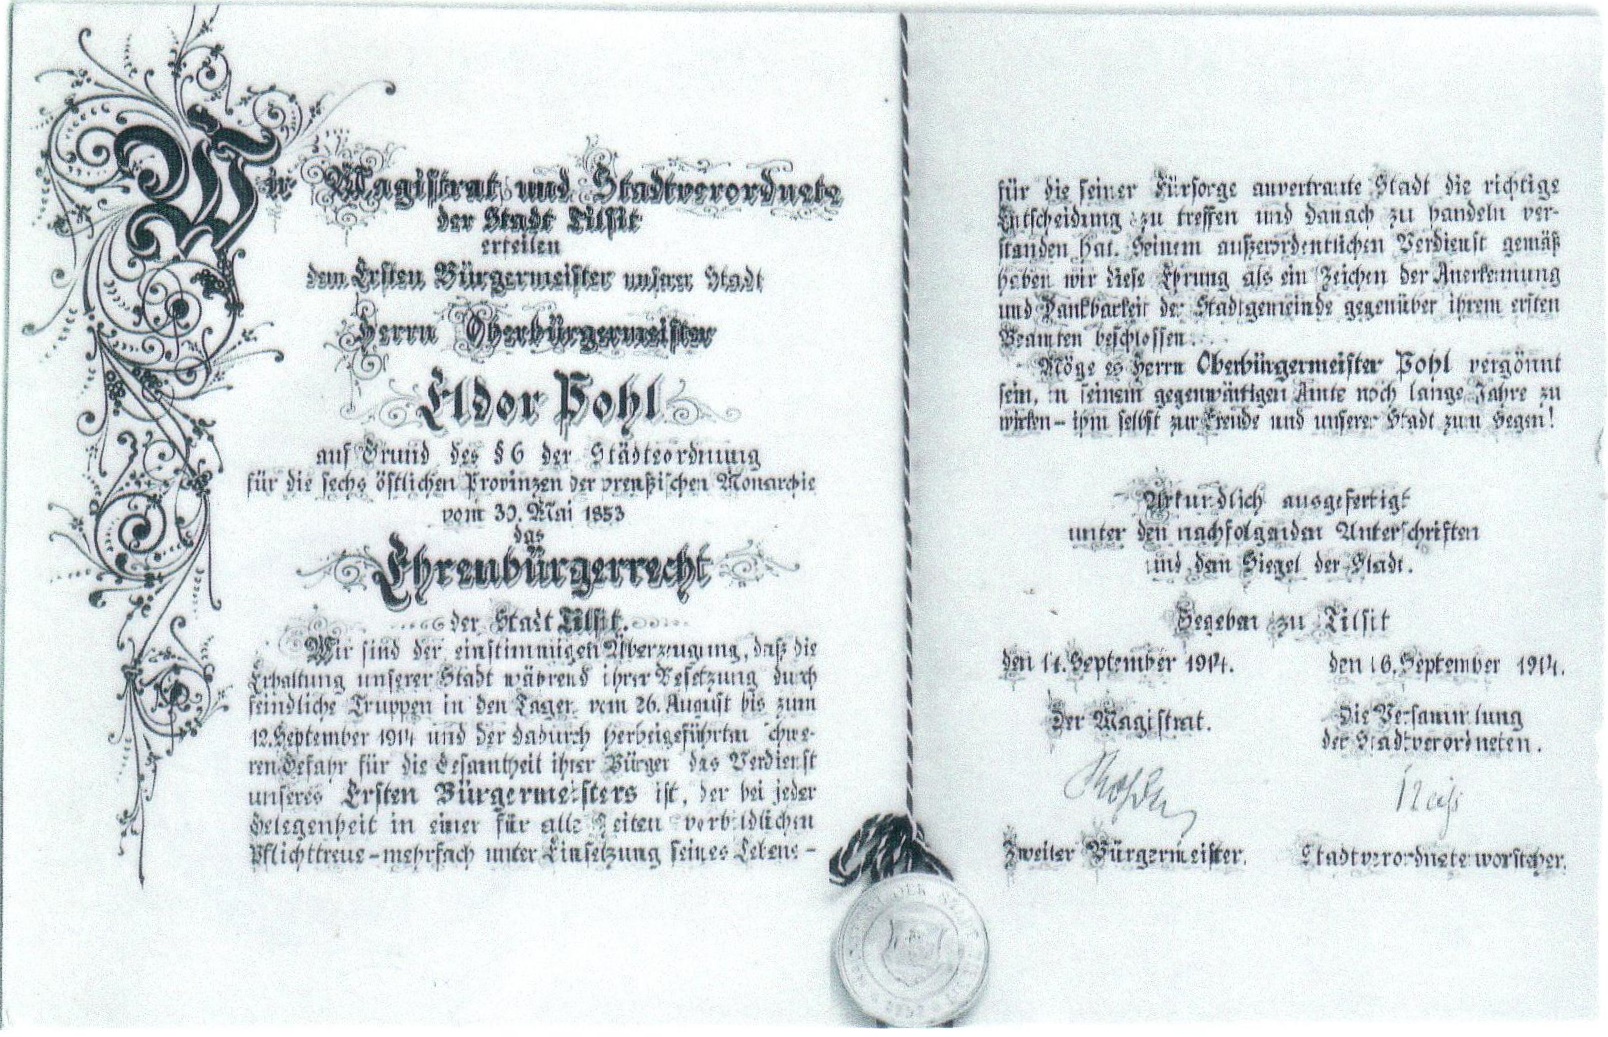 Wir Magistrat und Stadtverordnete
der Stadt Tilsit
erteilen
dem Ersten Bürgermeister unsrer Stadt
Herrn Oberbürgermeister
Eldor Pohl
auf Grund des § 6 der Städteordnung
für die sechs östlichen Provinzen der preußischen Monarchie
vom 30. Mai 1853
das
Ehrenbürgerrecht
der Stadt Tilsit.
Wir sind der einstimmigen Überzeugung, daß die
Erhaltung unserer Stadt während ihrer Besetzung durch
feindliche Truppen in den Tagen vom 26. August bis zum
12. September 1914 und der dadurch herbeigeführten schwe-
ren Gefahr für die Gesamtheit ihrer Bürger das Verdienst
unseres Ersten Bürgermeisters ist, der bei jeder
Gelegenheit in einer für alle Zeiten vorbildlichen
Pflichttreue - mehrfach unter Einsetzung seines Lebens -
für die seiner Fürsorge anvertraute Stadt die richtige
Entscheidung zu treffen und danach zu handeln ver-
standen hat. Seinem außerordentlichen Verdienst gemäß
haben wir diese Ehrung als ein Zeichen der Anerkennung
und Dankbarkeit der Stadtgemeinde gegenüber ihrem ersten
Beamten beschlossen.
Möge es Herrn Oberbürgermeister Pohl vergönnt
sein, in seinem gegenwärtigen Amte noch lange Jahre zu
wirken - ihm selbst zur Freude und unserer Stadt zum Segen!
Urkundlich ausgefertigt
unter den nachfolgenden Unterschriften
und dem Siegel der Stadt.
Gegeben zu Tilsit
den 14. September 1914. den 16. September 1914.
Der Magistrat. Die Versammlung
der Stadtverordneten.
Zweiter Bürgermeister. Stadtverordnetenvorsteher.